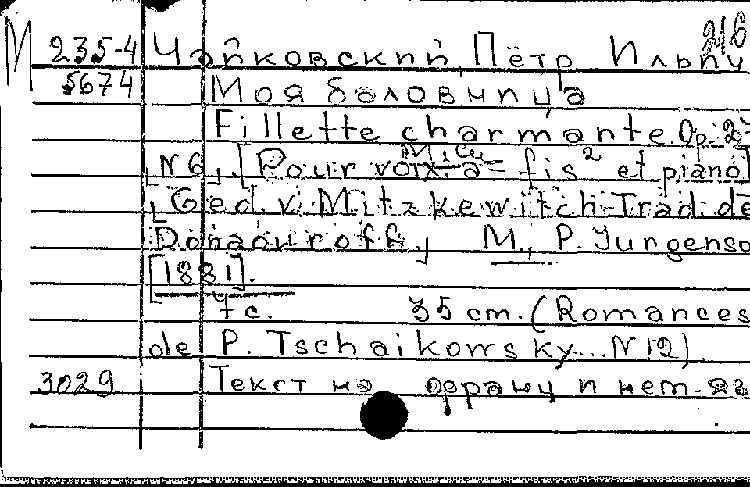 М 235-4 Чайковский, Пётр Ильич 216
5674 Моя баловница
Fillette charmante. Op. 2
N 6. [Pour voix a fis² et piano]
Ged. v. Mitzkewitch. Trad. de
M., P. Jurgenso
[1881].
4 с. 35 cm. (Romances
de P. Tschaikowsky... N 12)
3029 Текст на франц и нем. яз